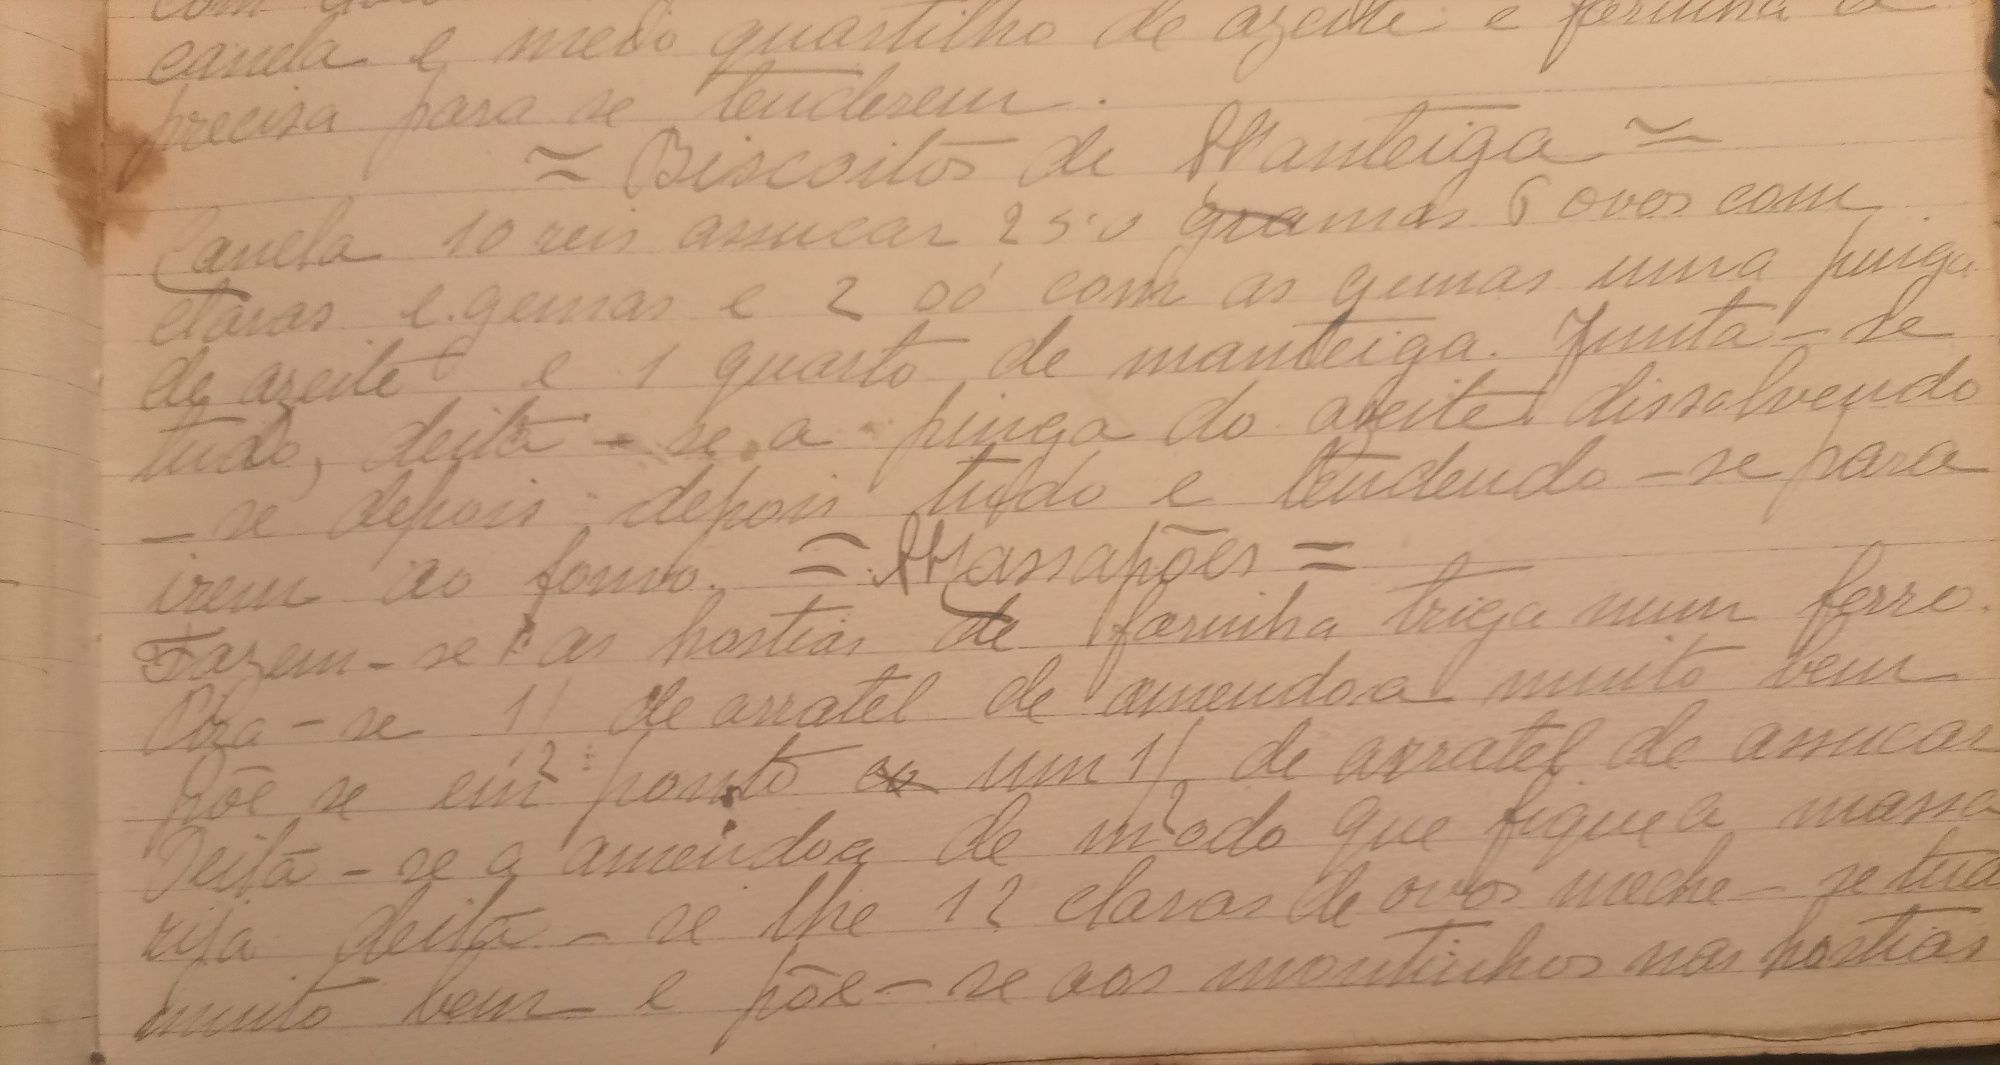 canela e meio quartilho de azeite e farinha a
precisa para se tenderem.
= Biscoitos de Manteiga =
Canela 10 reis assucar 250 gramas 6 ovos com
claras e gemas e 2 só com as gemas uma pinga
de azeite e 1 quarto de manteiga. Junta-se
tudo, deita-se a pinga do azeite dissolvendo
-se depois depois tudo e tendendo-se para
irem ao forno. = Massapões =
Fazem-se as hostias de farinha triga num ferro.
1/2 de arratel de amendoa muito bem
põe se em ponto um 1/2 de arratel de assucar
Deita-se a amendoa de modo que fique a massa
rija deita-se lhe 12 claras de ovos meche-se tudo
muito bem e põe-se aos montinhos nas hostias